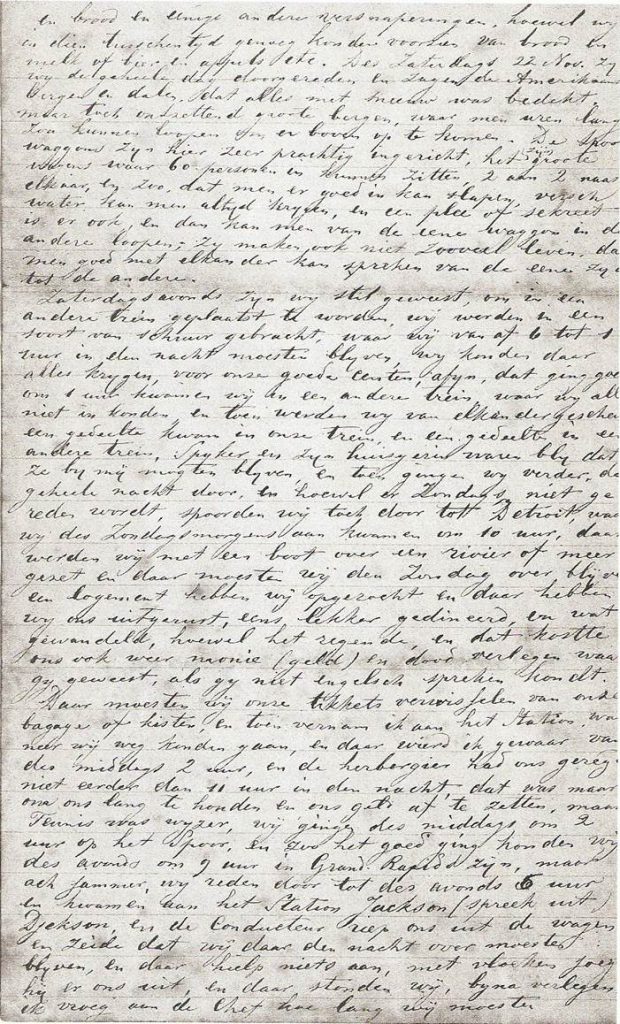 en brood en eenige andere versnaperingen, hoewel wy
in dien tusschentyd genoeg konden voorzien van brood en
melk of bier en appels etc. Des Zaturdags 22 Nov. zy
wy de geheele dag doorgereden en zagen de Amerikaans
bergen en dalen, dat alles met sneeuw was bedekt
maar toch ontzettend groote bergen, waar men uren lang
zou kunnen loopen om er boven op te komen. De spoor
waggons zyn hier zeer prachtig ingericht, het zyn groote
wagens waar 60 personen in kunnen zitten 2 aan 2 naas
elkaar, en zoo, dat men er goed in kan slapen, versch
water kan men altyd krygen, en een plee of sekreet
is er ook, en dan kan men van de eene waggon in de
andere loopen; zy maken ook niet zooveel leven, da
men goed met elkander kan spreken van de eene zy
tot de andere.
Zaterdagsavonds zyn wy stil geweest, om in een
andere trein geplaatst te worden, wij werden in een
soort van schuur gebracht, waar wij van af 6 tot 1
uur in den nacht moesten blyven, wy konden daar
alles krygen, voor onze goede centen, afyn, dat ging goe
om 1 uur kwamen wij in een andere trein, waar wij all
niet in konden en toen werden wy van elkander geschei
een gedeelte kwam in onze trein, en een gedeelte in een
andere trein, Spyker en zyn huisgezin waren bly dat
ze by mij mogten blyven, en toen gingen wy verder, de
geheele nacht door, en hoewel er Zondags niet ge
reden wordt, spoorden wij toch door tot Detroit, waa
wy des Zondagsmorgens aan kwamen om 10 uur, daar
werden wij met een boot over een rivier of meer
gezet en daar moesten wij den Zondag over blyve
een logement hebben wij opgezocht en daar hebben
wy ons uitgerust, eens lekker gedineerd, en wat
gewandeld, hoewel het regende, en dat kostte
ons ook weer monie (geld) en dood verlegen waar
gy geweest, als gy niet engelsch spreken kondt.
Daar moesten wij onze tikkets verwisselen van onze
bagage of kisten, en toen vernam ik aan het Station, wa
neer wij weg konden gaan, en daar werd ik gewaar van
des middags 2 uur, en de herbergier had ons gezeg
niet eerder dan 11 uur in den nacht, dat was maar
om ons lang te houden en ons geld af te zetten, maar
Teunis was wyzer, wij gingen des middags om 2
uur op het Spoor, en zoo het goed ging konden wij
des avonds om 9 uur in Grand Rapids zyn, maar
ach jammer, wy reden door tot des avonds 6 uur
en kwamen aan het Station Jackson (spreek uit)
Djekson, en de Conducteur riep ons uit de wagen
en zeide dat wij daar den nacht over moesten
blyven, en daar hielp niets aan, met vloeken joeg
hij er ons uit, en daar stonden wij, byna verlegen
ik vroeg aan de Chef hoe lang wij moesten